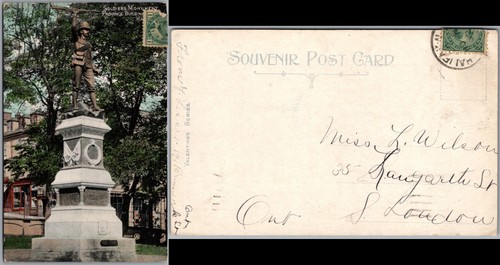 SOLDIERS MONUMENT
PROVINCE BUILDING
SOUVENIR POST CARD
VALENTINES SERIES
HALIFAX
Miss L. Wilson
35 Langarth St
S. London
Ont